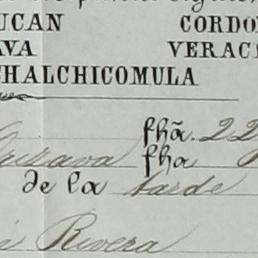 UCAN CORDO
AVA VERAC
CHALCHICOMULA
fhã. 22
Orizava fha
de la tarde
Rivera